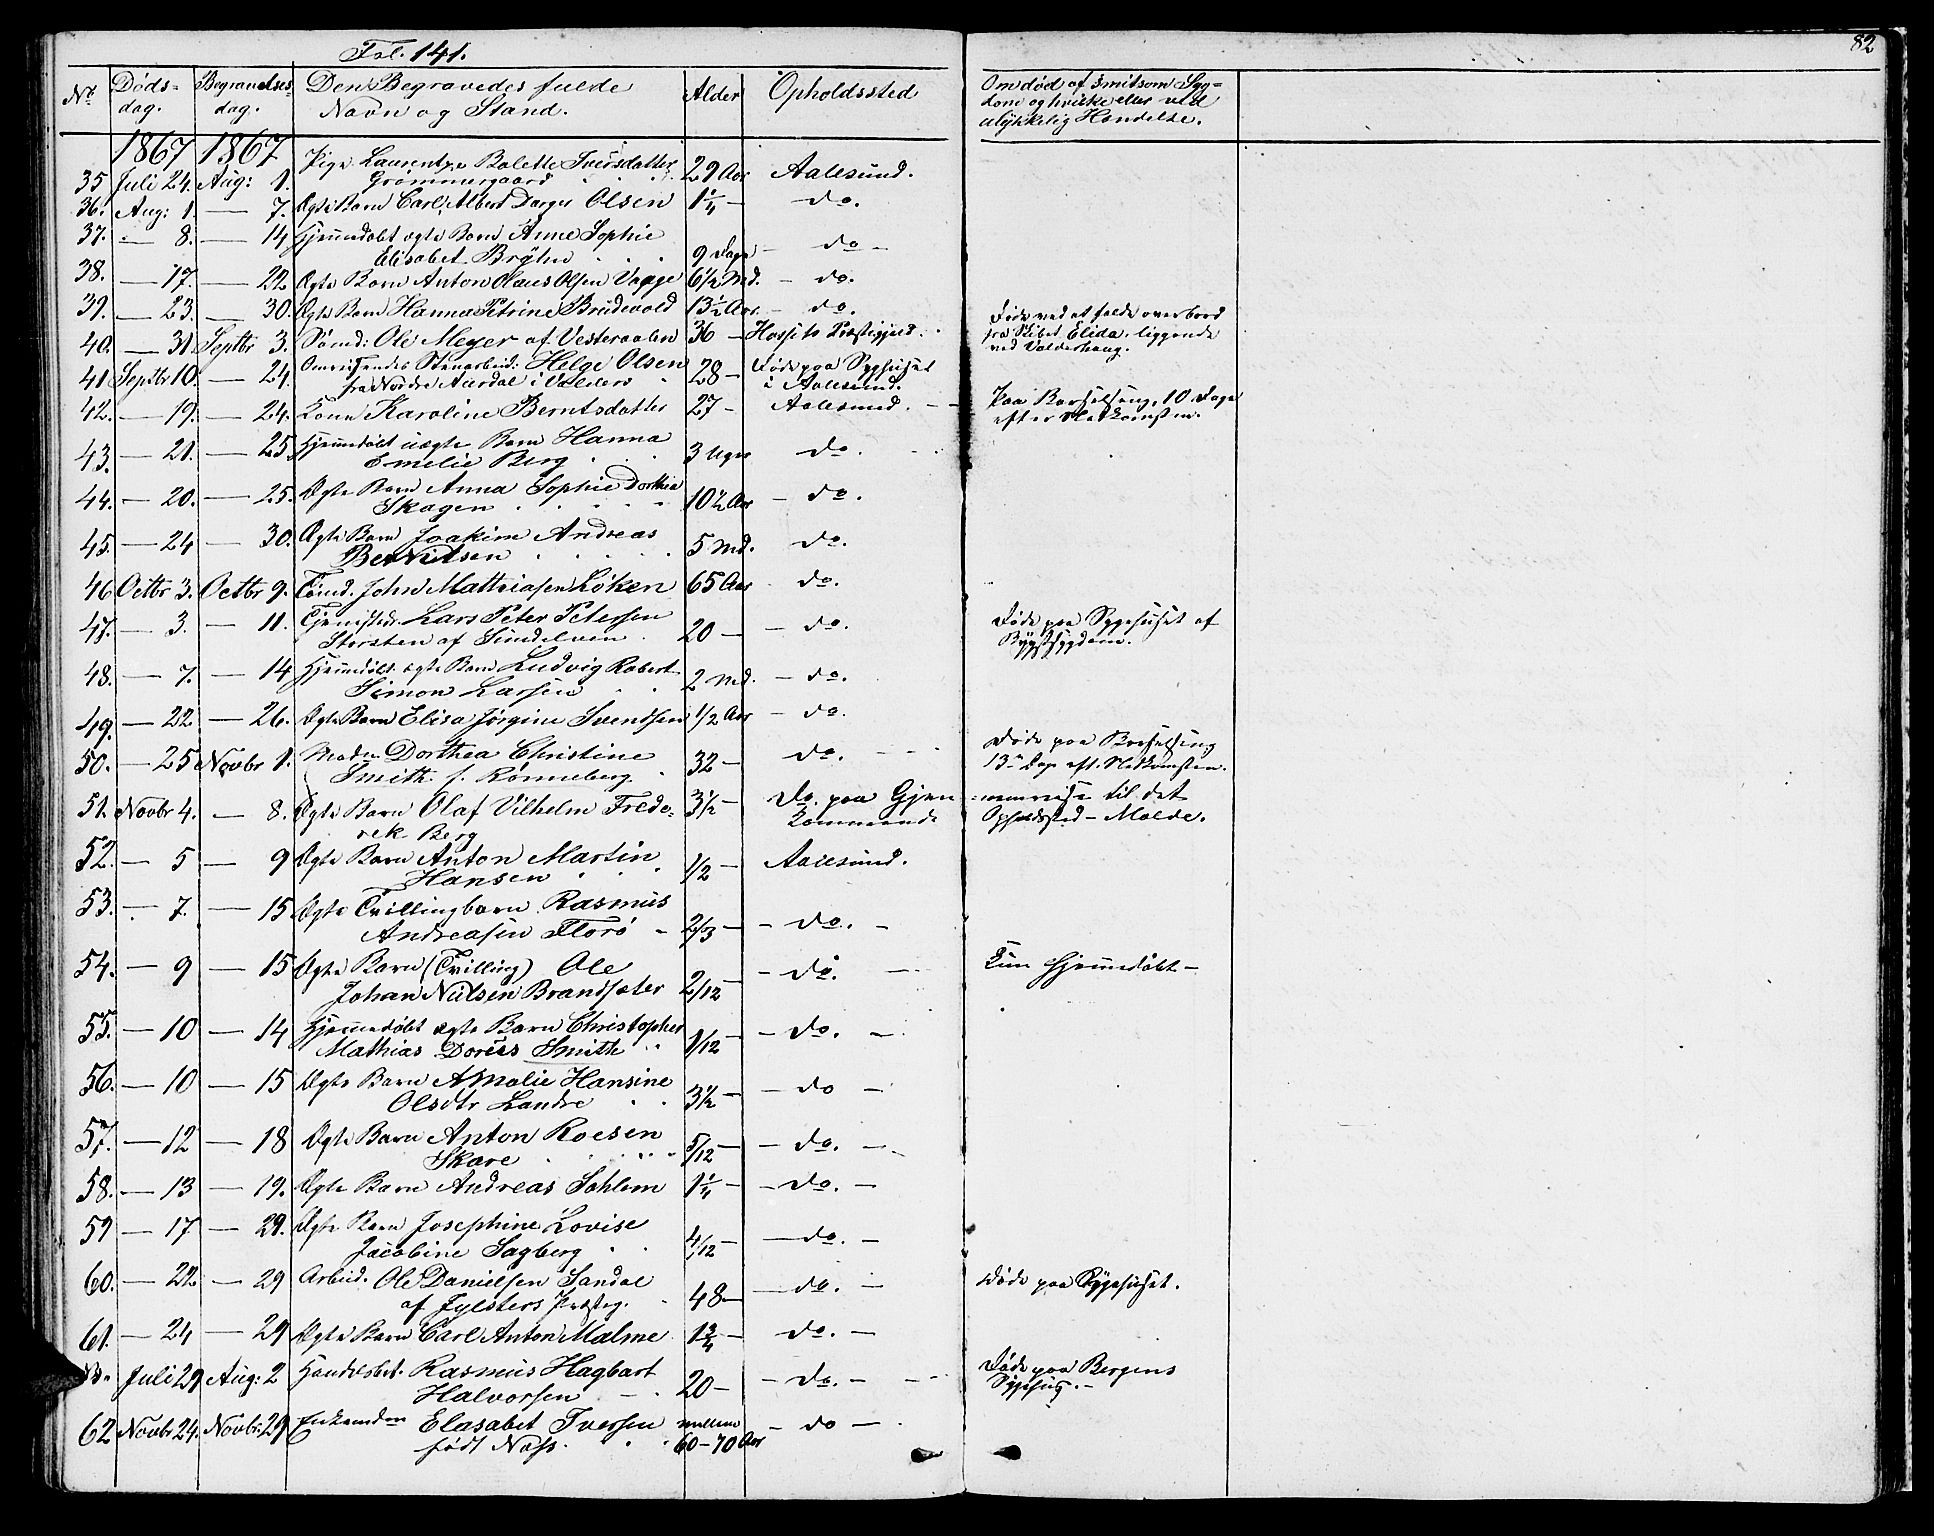 Fol. 141.
82
No. Døds- Begravelses- Den Begravedes fulde Alder Opholdssted Om død af smitsom Syg-
dag. dag. Navn og Stand. dom og hvilke eller ved
ulykkelig Hændelse.
1867 1867
Pige Laurentze Bolette Iversdatter
35 Juli 24. Aug: 1. Grømmergaard 29 Aar Aalesund.
36. Aug: 1. — 7. Ægte Barn Carl Albert Olsen 1¼ — do.
37. — 8. — 14 Hjemmedøbt ægte Barn Anne Sophie
Elisabet 9 Dage — do —
38. — 17. — 22 Ægte Barn Anton Olaus Olsen 6½ Md. — do.
39. — 23. — 30. Ægte Barn Hanna Petrine Brudevold 13½ Aar. — do. Døde ved at falde overbord
40. — 31. Septbr 3. Sømd: Ole Meyer af Vesteraalen 36 — Præstegjeld. fra Skibet Elida, liggende
ved Valderhaug.
Omreisende Stenarbeid: Helge Olsen Døde paa Sygehuset
41 Septbr 10. — 24. fra Nordre Aurdal i Valders 28 — i Aalesund.
42. — 19. — 24. Kone Karoline Berntsdatter 27 — Aalesund. — Paa Barselseng, 10 Dage
efter Nedkomsten.
43. — 21. — 25. Hjemmedøbt uægte Barn Hanna
Emelie Berg 3 Uger do.
44. — 20. — 25. Ægte Barn Anna Sophie Dorthea
Skagen 10½ Aar — do.
45. — 24 — 30. Ægte Barn Joakim Andreas
Berntsen 5 Md. do.
46 Octbr 3. Octbr 9. John Mathiasen Løken 65 Aar do.
47. — 3. — 11. Lars Peter Petersen Døde paa Sygehuset af
af 20 — — do. Brystsygdom.
48. — 7. — 14 Hjemmedøbt ægte Barn Ludvig Robert
Simon Larsen 2 Md. — do.
49. — 22. — 26. Ægte Barn Elisa Jørgine Svendsen 1/2 Aar — do.
50. — 25 Novbr 1. Madm Dorthea Christine Døde paa Barselseng
Smith f. Rønneberg. 32 — do. — 13de Dag eft. Nedkomsten.
51. Novbr 4. — 8. Ægte Barn Olaf Vilhelm Frede- 3½ — Do. paa Gjen- nemreise til det
rek Berg kommende Opholdssted — Molde.
52. — 5 — 9 Ægte Barn Anton Martin
Hansen 1/2 — Aalesund.
53. — 7. — 15 Ægte Tvillingbarn Rasmus
Andreasen Florø 2/3 — — do. —
54. — 9 — 15 Ægte Barn (Tvilling) Ole
Johan Nielsen Brandsæter 2/12 — do. — Kun Hjemmedøbt —
55. — 10 — 14 Hjemmedøbt ægte Barn Christopher
Mathias Smith 1/12 — do. —
56. — 10 — 15 Ægte Barn Amalie Hansine
Olsdtr Landre 3½ — do —
57. — 12 — 18 Ægte Barn Anton Roesen
Skare 5/12 — do. —
58. — 13 — 19. Ægte Barn Andreas Sohlem 1¼ — do. —
59 — 17. — 29. Ægte Barn Josephine Lovise
Jacobine Sagberg 4/12 — do. —
60. — 22. — 29 Arbeid. Ole Danielsen Sandal
af Jylsters Præsteg. 48 — do. — Døde paa Sygehuset.
61. — 24 — 29 Ægte Barn Carl Anton Malme 1¾ — do. —
Juli 29 Aug: 2 Handelsbet. Rasmus Hagbart
Halvorsen 20 — do. — Døde paa Bergens
Sygehus. —
62 Novbr 24. Novbr: 29 Elasabet Iversen mellem — do —
født Næss. 60 — 70 Aar